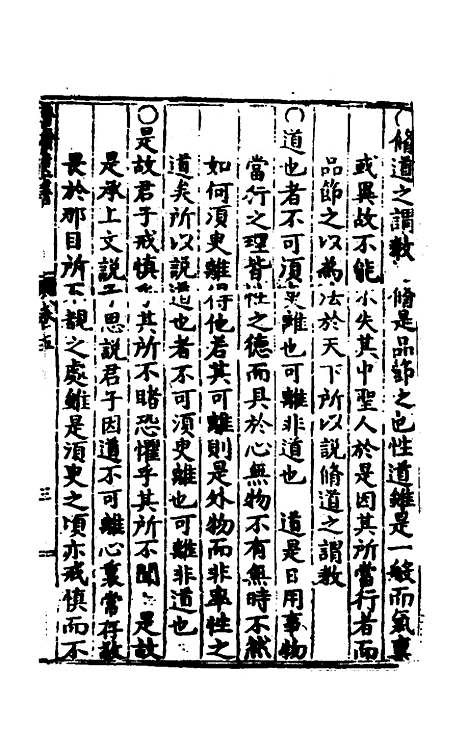 ○脩道之謂教　脩是品節之也性道雖是一般而氣稟
或異故不能小失其中聖人於是因其所當行者而
品節之以為法於天下所以說脩道之謂教
○道也者不可須臾離也可離非道也　道是日用事物
當行之理皆性之德而具於心無物不有無時不然
如何須臾離得他若其可離則是外物而非率性之
道矣所以說道也者不可須臾離也可離非道也
○是故君子戒慎乎其所不睹恐懼乎其所不聞　是故
是承上文說子思說君子因道不可離心裏常存敬
畏於那目所不覩之處雖是須臾之頃亦戒慎而不
三